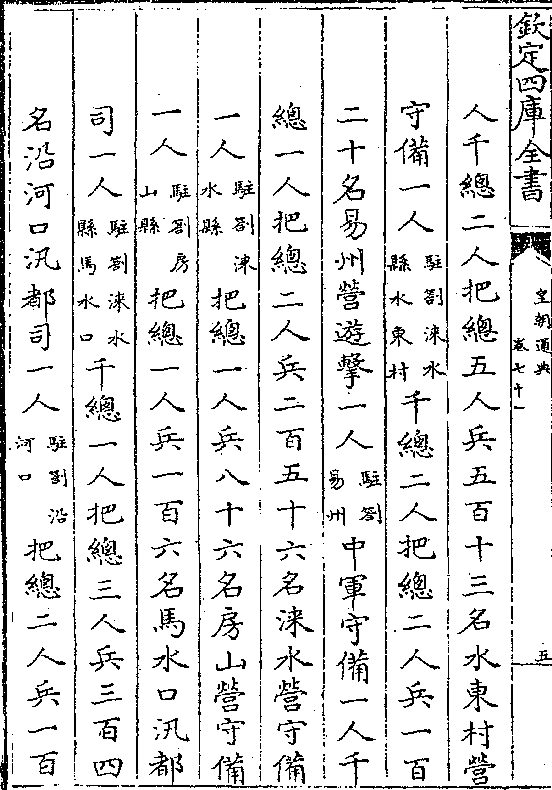 欽定四庫全書
皇朝通典
卷七十一
五
人千總二人把總五人兵五百十三名水東村營
守備一人駐劄淶水縣水東村千總二人把總二人兵一百
二十名易州營遊擊一人駐劄易州中軍守備一人千
總一人把總二人兵二百五十六名淶水營守備
一人駐劄淶水縣把總一人兵八十六名房山營守備
一人駐劄房山縣把總一人兵一百六名馬水口汛都
司一人駐劄淶水縣馬水口千總一人把總三人兵三百四
名沿河口汛都司一人駐劄沿河口把總二人兵一百